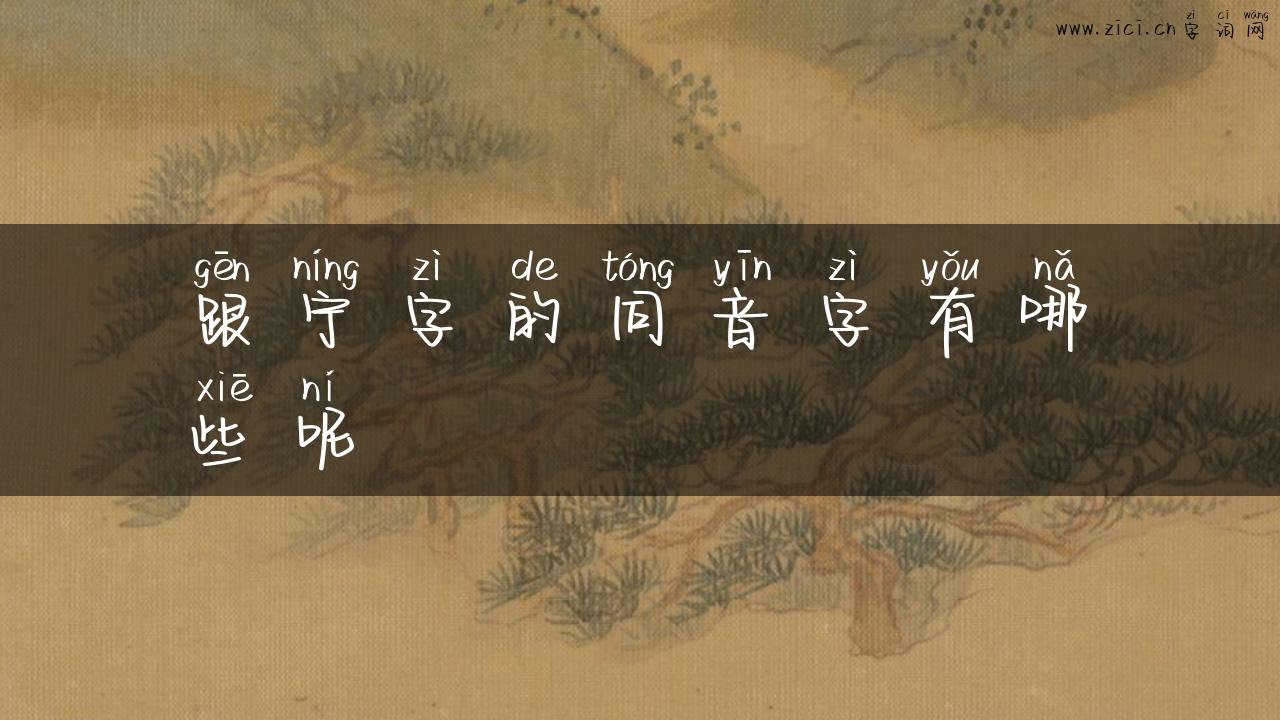 zì cí wǎng
www.zící.cn 字 词 网
gēn níng zì de tóng yīn zì yǒu nǎ
跟 宁 字 的 同 音 字 有 哪
xiē ní
些 呢